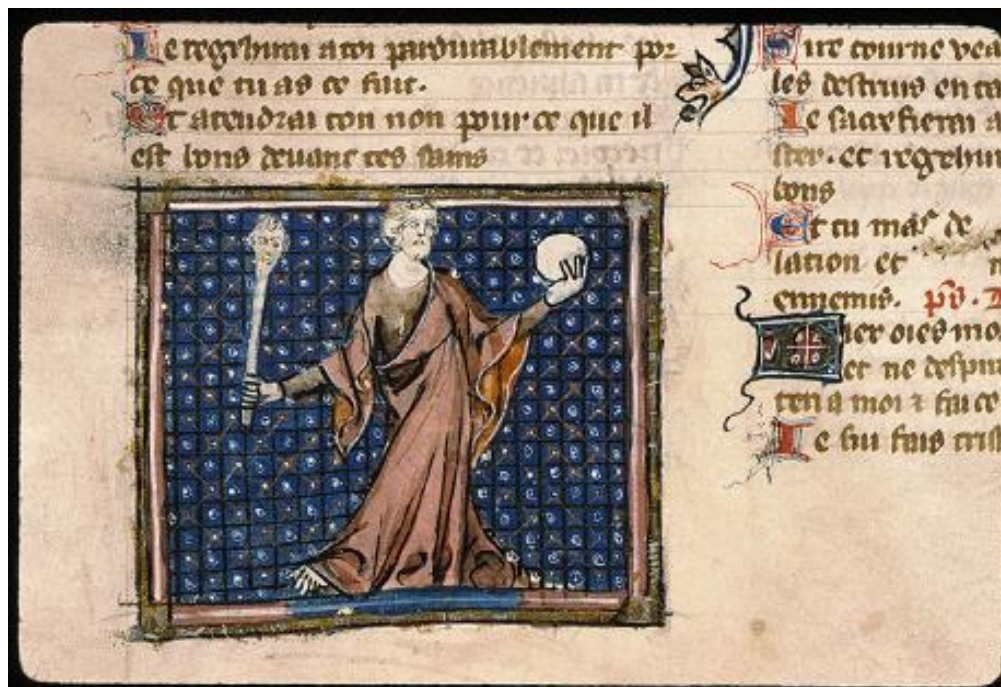 Ie regehirai a toi pardurablement por
ce que tu as ce fait.
Et atendrai ton non pour ce que il
est bons deuant tes sains
Sire tourne
les destruis en ta
Ie sacrefierai a
et regehir
bons
Et tu mas de
lation et
ennemis. ps.
oies mo
et ne despis
ten a moi ⁊ fai ce
Ie sui fais tris